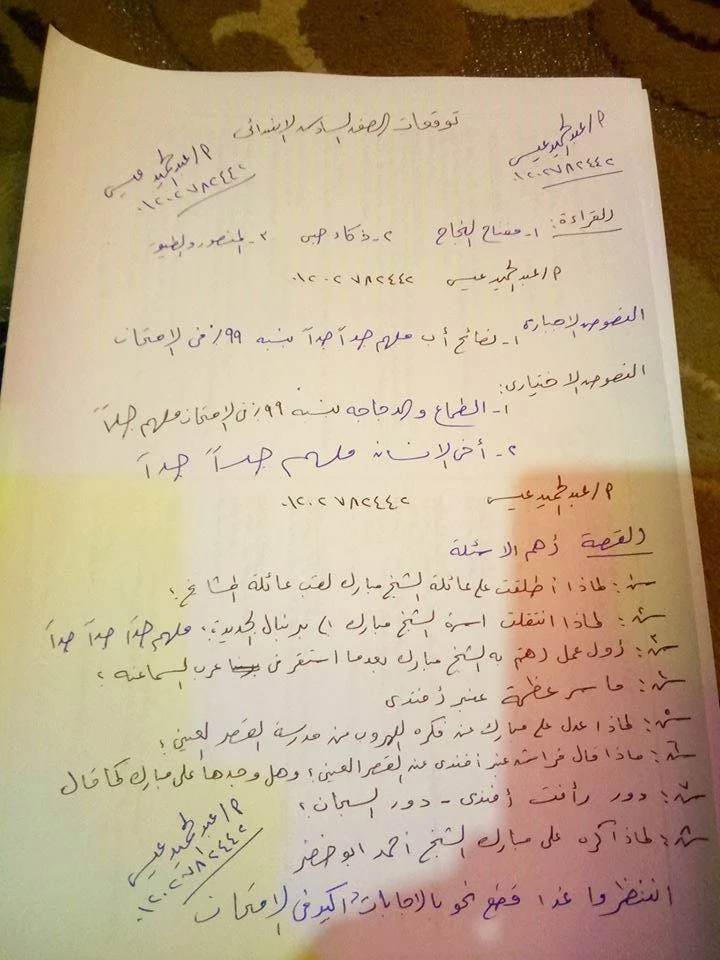 توقعات الصف السادس الابتدائى
م/عبدالحميد عيسى
٠١٢٠٢٧٨٢٤٤٢
م/عبدالحميد عيسى
٠١٢٠٢٧٨٢٤٤٢
القراءة: ١- مفتاح النجاح ٢- ذكاء صبى ٣- المنصور والطيور
م/عبدالحميد عيسى ٠١٢٠٢٧٨٢٤٤٢
النصوص الاجبارى ١- نصائح أب ملهم جداً جداً بنسبه ٩٩٪ فى الإمتحان
النصوص الاختيارى:
١- الطماع والدجاجه بنسبة ٩٩٪ فى الإمتحان ملهم جداً
٢- أخى الإنسان ملهم جداً جداً
م/عبدالحميد عيسى ٠١٢٠٢٧٨٢٤٤٢
القصة أهم الاسئلة
س١: لماذا أطلقت على عائلة الشيخ مبارك لقب عائلة المشايخ؟
س٢: لماذا انتقلت اسرة الشيخ مبارك الى برنبال الجديدة؟ ملهم جداً جداً جداً
س٣: أول عمل اهتم به الشيخ مبارك بعدما استقر فى عرب السماعنه؟
س٤: ما سر عظمة عنبر أفندى
س٥: لماذا عدل على مبارك عن فكره الهروب من مدرسة القصر العينى؟
س٦: ماذا قال فراش عنبر افندى عن القصر العينى؟ وهل وجدها على مبارك كما قال
س٧: دور رأفت أفندى - دور السجان؟
س٨: لماذا كره على مبارك الشيخ أحمد ابو خضر
م/عبدالحميد عيسى
٠١٢٠٢٧٨٢٤٤٢
انتظروا غدا قطع نحو بالاجابات اكيد فى الإمتحان